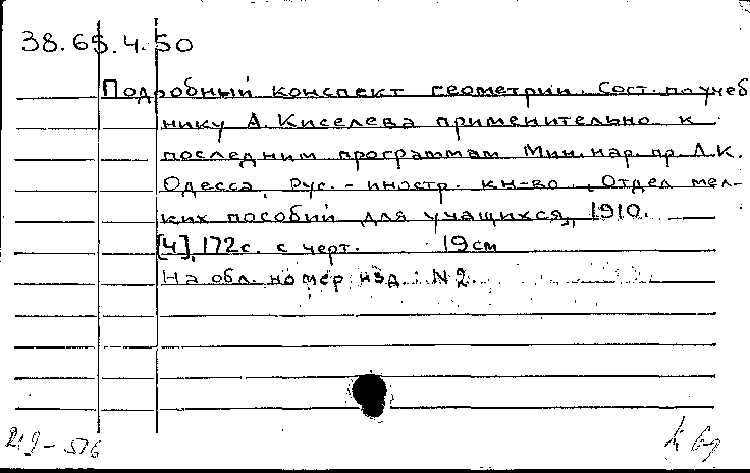 38.65.4.50
Подробный конспект геометрии. Сост. по учеб
нику А. Киселева применительно к
последним программам Мин. нар. пр. Л.К.
Одесса, Рус.-иностр. кн-во, Отдел мел-
ких пособий для учащихся, 1910.
[4], 172 с. с черт. 19 см
На обл. номер изд.: N 2.
219-576